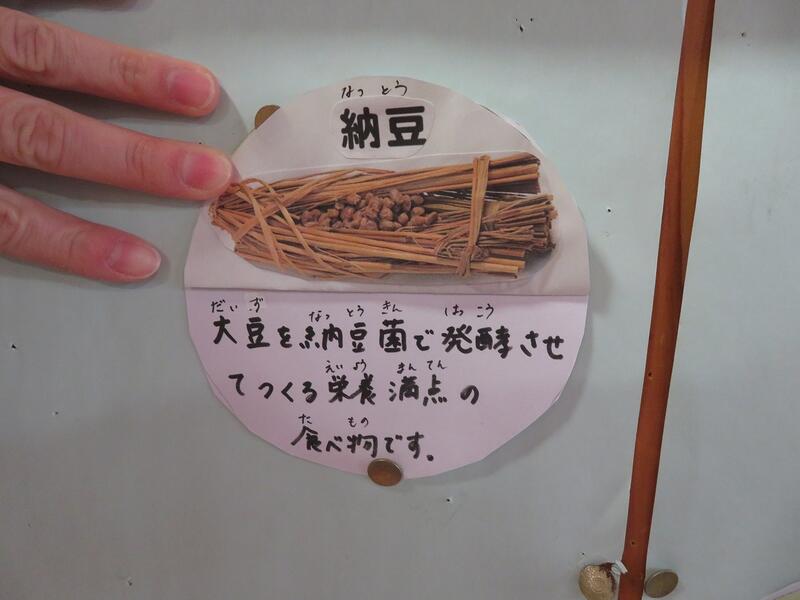 なっとう
納豆
だいず なっとうきん はっこう
大豆を納豆菌で発酵させ
えいよう まんてん
てつくる栄養満点の
た もの
食べ物です。